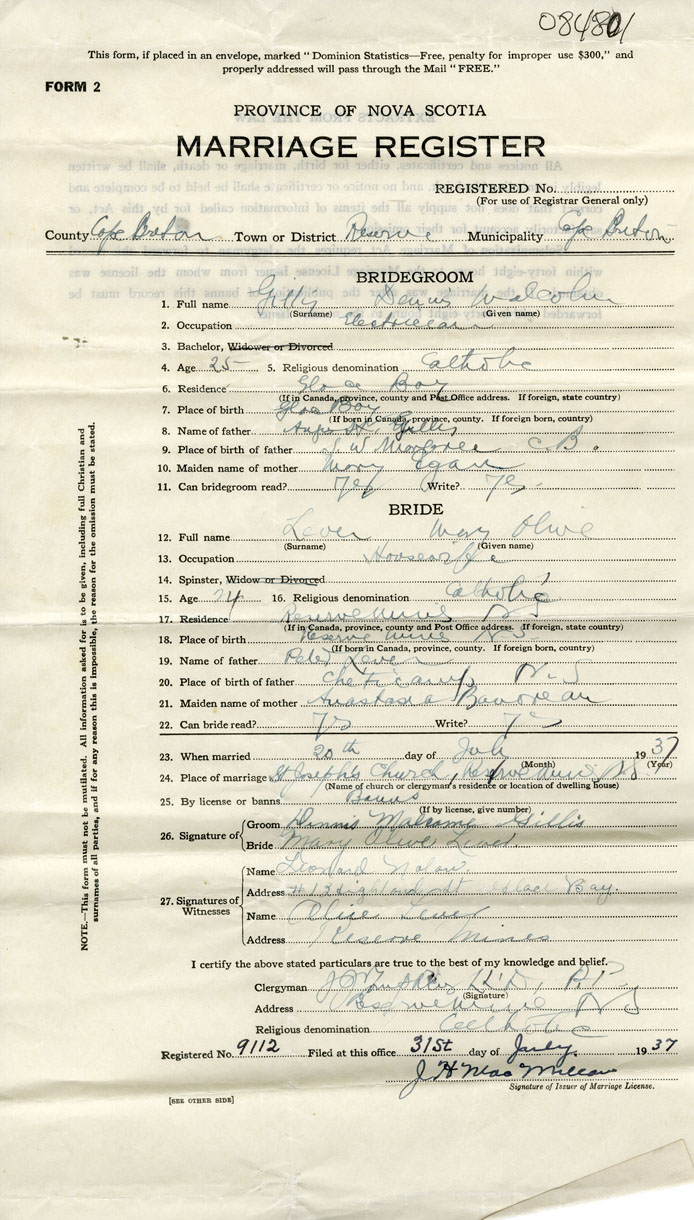 084801
This form, if placed in an envelope, marked "Dominion Statistics—Free, penalty for improper use $300," and
properly addressed will pass through the Mail "FREE."
FORM 2
PROVINCE OF NOVA SCOTIA
MARRIAGE REGISTER
REGISTERED No.
(For use of Registrar General only)
County Cape Breton Town or District Reserve Municipality Cape Breton
BRIDEGROOM
1. Full name Gillis Dennis Malcolm
(Surname) (Given name)
2. Occupation Electrician
3. Bachelor, Widower or Divorced
4. Age 25 5. Religious denomination Catholic
6. Residence Glace Bay
(If in Canada, province, county and Post Office address. If foreign, state country)
7. Place of birth Glace Bay
(If born in Canada, province, county. If foreign born, country)
8. Name of father Angus Gillis
9. Place of father S. W. Margaree C. B.
10. Maiden name of mother Mary Egan
11. Can bridegroom read? Yes Write? Yes
BRIDE
12. Full name Lever May Olive
(Surname) (Given name)
13. Occupation
14. Spinster, Widow or Divorced
15. Age 24 16. Religious denomination Catholic
17. Residence Reserve Mines N S
(If in Canada, province, county and Post Office address. If foreign, state country)
18. Place of birth Reserve Mines N S
(If born in Canada, province, county. If foreign born, country)
19. Name of father Peter Lever
20. Place of birth of father Cheticamp N. S
21. Maiden name of mother Anastasia
22. Can bride read? Yes Write? Yes
23. When married 20th day of July 1937
(Month) (Year)
24. Place of marriage St Joseph's Church, Reserve Mines N S
(Name of church or clergyman's residence or location of dwelling house)
25. By license or banns Banns
(If by license, give number)
26. Signature of
Groom Dennis Malcome Gillis
Bride Mary Olive Lever
27. Signatures of Witnesses
Name Leonard Nolan
Address # 12 Highland St Glace Bay.
Name Olive Lever
Address Reserve Mines
I certify the above stated particulars are true to the best of my knowledge and belief.
Clergyman P.P.
(Signature)
Address Reserve Mines N S
Religious denomination Catholic
Registered No. 9112 Filed at this office 31st day of July. 1937
J H MacMillan
Signature of Issuer of Marriage License.
[SEE OTHER SIDE]
NOTE.—This form must not be mutilated. All information asked for is to be given, including full Christian and
surnames of all parties, and if for any reason this is impossible, the reason for the omission must be stated.